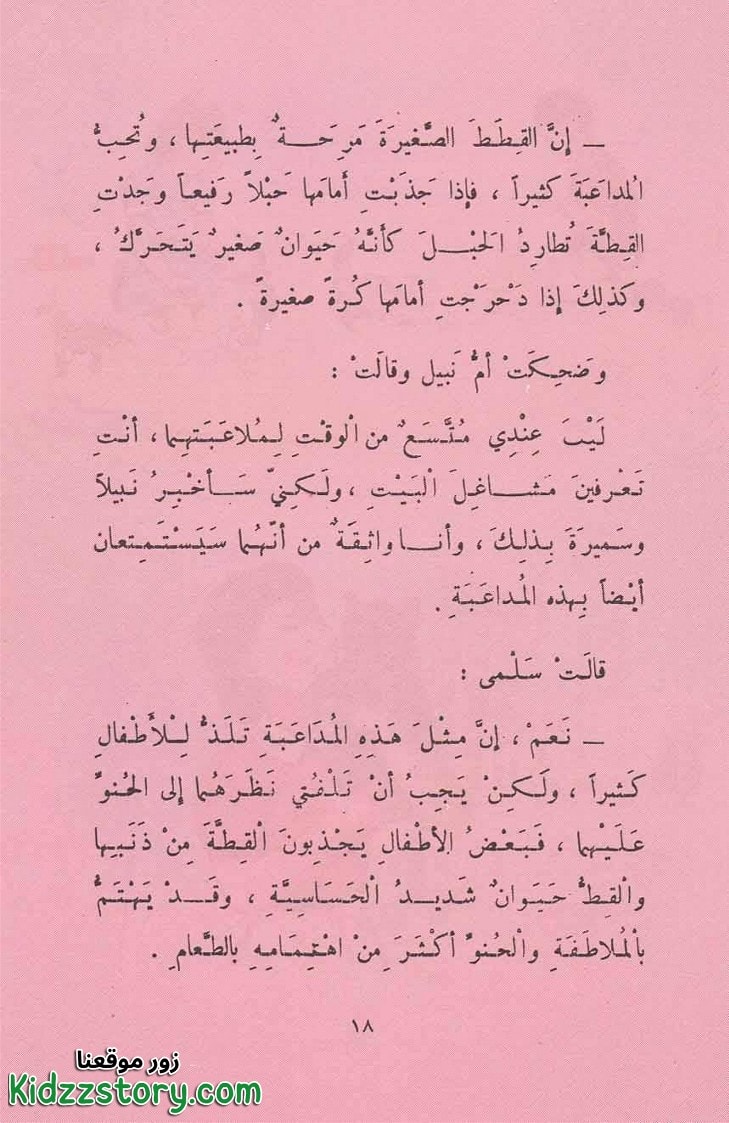 ــ إِنَّ القِطَطَ الصَّغيرَةَ مَرِحَــةٌ بِطبيعَتِـها ، وتُحِبُّ
المُداعَبَةَ كثيراً ، فإذا جَذَبْتِ أمامَها حَبْلاً رَفيعاً وَجَدْتِ
القِطَّةَ تُطارِدُ الحَبْــلَ كأنَّهُ حَيَوانٌ صَغيرٌ يَتَحَرَّكُ ،
وكذلِكَ إذا دَحْرَجْتِ أمامَها كُرةً صغيرةً .
وضَحِكَتْ أمُّ نَبيل وقالَتْ :
لَيْسَ عِنْدِي مُتَّسَعٌ من الْوقْتِ لِـمُلاعَبَـتِهِما ، أنْتِ
تَعْرِفينَ مَشـاغِلَ الْبَيْـتِ ، ولَـكِنِّي سَـأُخْبِرُ نَبيلاً
وسَميرَةَ بِذلِكَ ، وأنـا واثِقَةٌ من أنَّهُما سَيَسْتَمِتعان
أيْضاً بِهذه المُداعَبَةِ .
قالَتْ سَلْمى :
ــ نَعَمْ ، إنَّ مِثْلَ هَذِهِ المُدَاعَبَةِ تَلَذُّ لِلْأَطْفالِ
كَثيراً ، ولَـكِـنْ يَجِبُ أنْ تَلْفُتي نَظَرَهُما إلى الحُنوِّ
عَلَيْهِما ، فَبَعْضُ الأطْفالِ يَجْذِبونَ الْقِطَّةَ مِنْ ذَنَبِها
والْقِطُّ حَيَوانٌ شَديدُ الْحَسَاسِيَّةِ ، وقَــدْ يَهْتَمُّ
بالْمُلاطَفَةِ والْحُنوِّ أكْثَرَ مِنْ اهْتِمَامِهِ بالطَّعامِ .
١٨
زور موقعنا
Kidzzstory.com